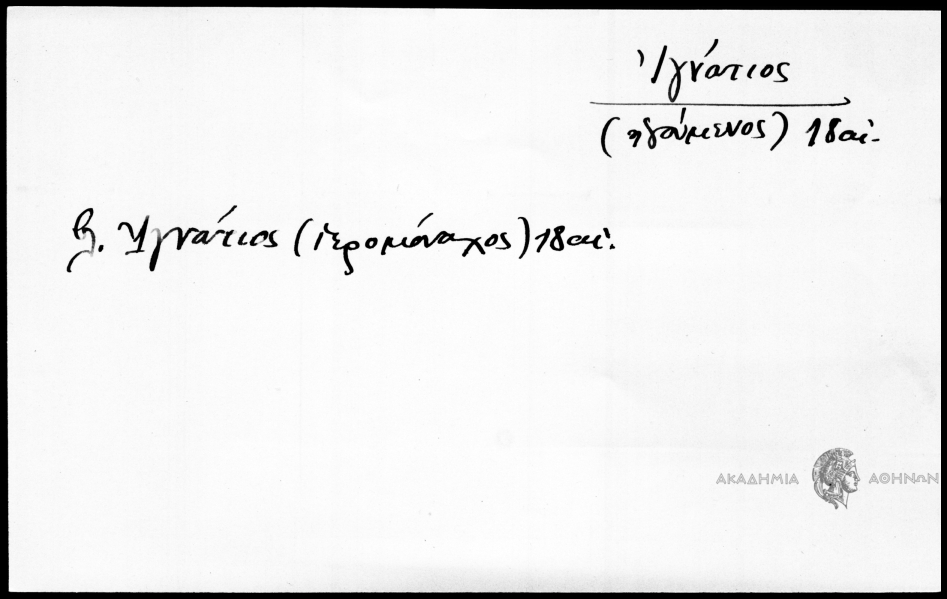 Ἰγνάτιος
(ηγούμενος) 18 αἰ.
βλ. Ἰγνάτιος (ἱερομόναχος) 18 αἰ.
ΑΚΑΔΗΜΙΑ ΑΘΗΝΩΝ